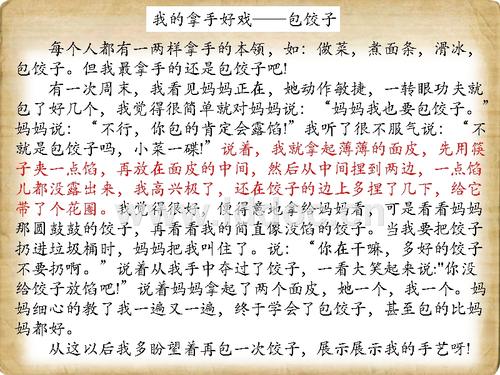 我的拿手好戏——包饺子
每个人都有一两样拿手的本领，如：做菜，煮面条，滑冰，
包饺子。但我最拿手的还是包饺子吧!
有一次周末，我看见妈妈正在，她动作敏捷，一转眼功夫就
包了好几个，我觉得很简单就对妈妈说：“妈妈我也要包饺子。”
妈妈说：“不行，你包的肯定会露馅!”我听了很不服气说：“不
就是包饺子吗，小菜一碟!”说着，我就拿起薄薄的面皮，先用筷
子夹一点馅，再放在面皮的中间，然后从中间捏到两边，一点馅
儿都没露出来，我高兴极了，还在饺子的边上多捏了几下，给它
带了个花圈。我觉得很好，便得意地拿给妈妈看，可是看看妈妈
那圆鼓鼓的饺子，再看看我的简直像没馅的饺子。当我要把饺子
扔进垃圾桶时，妈妈把我叫住了。说：“你在干嘛，多好的饺子
不要扔啊。”说着从我手中夺过了饺子，一看大笑起来说:"你没
给饺子放馅吧!”说着妈妈拿起了两个面皮，她一个，我一个。妈
妈细心的教了我一遍又一遍，终于学会了包饺子，甚至包的比妈
妈都好。
从这以后我多盼望着再包一次饺子，展示展示我的手艺呀!